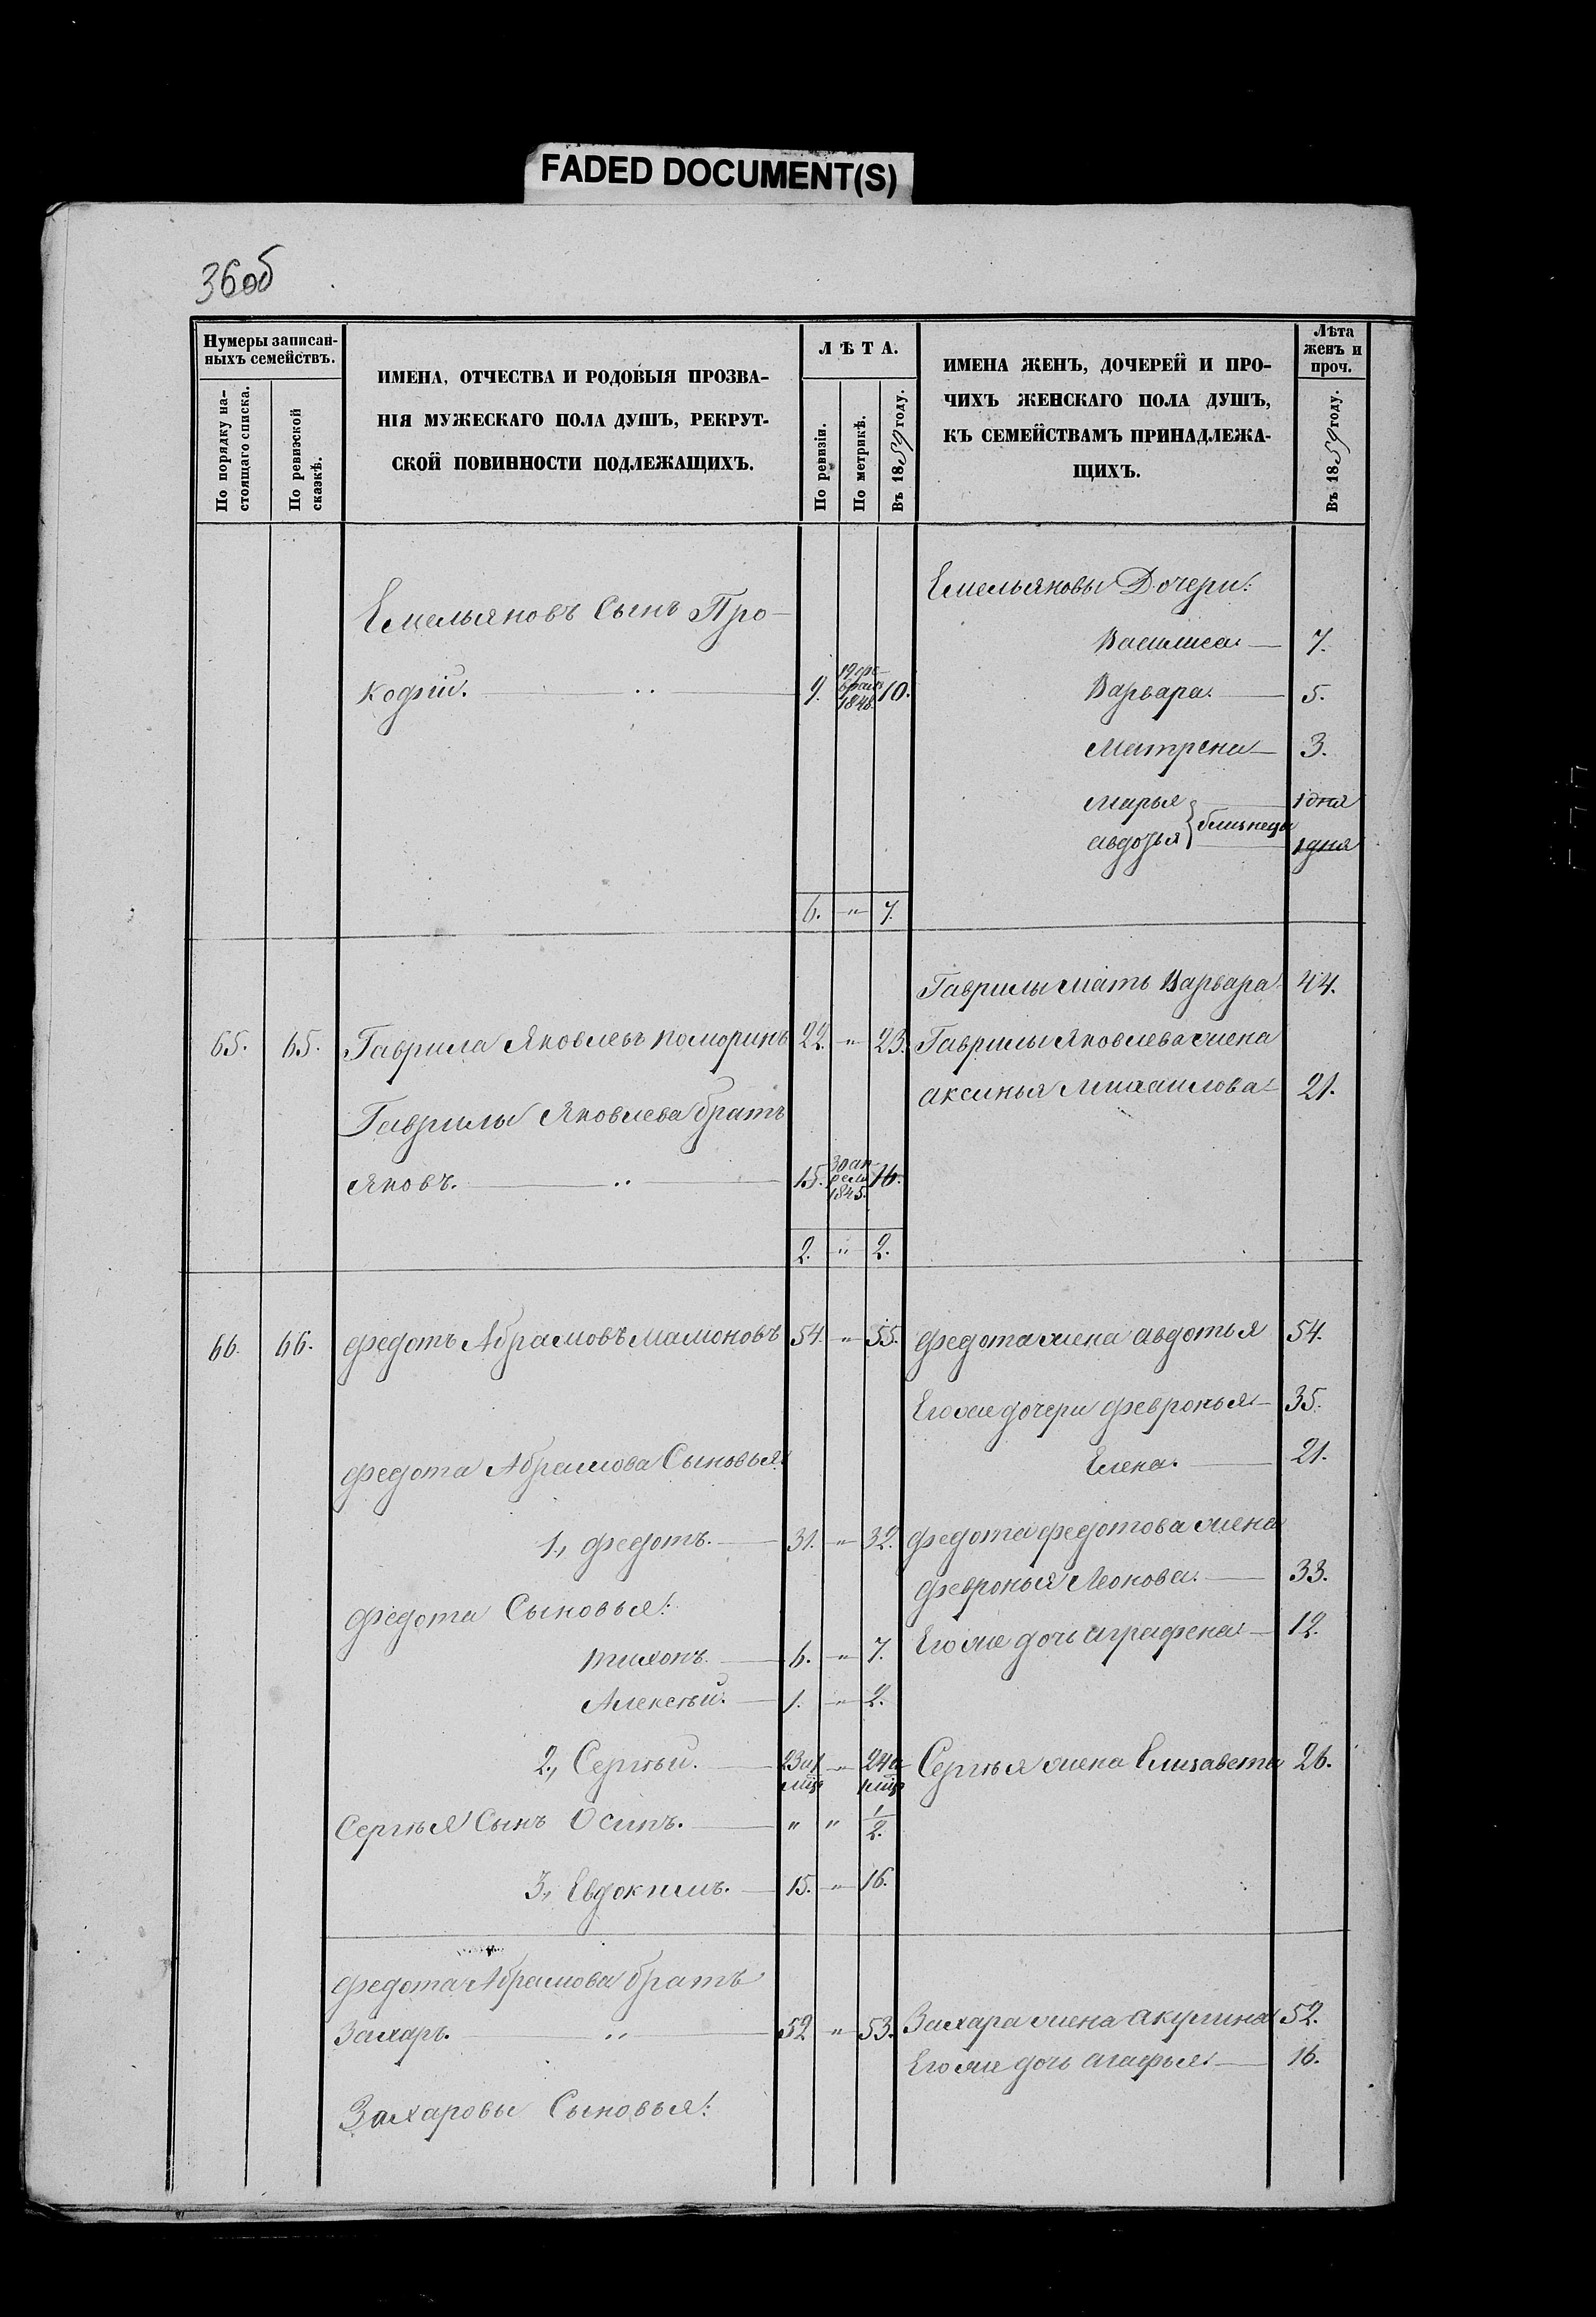 FADED DOCUMENT(S)
36об
Нумеры записан-
ныхъ семействъ.
По порядку на-
стоящаго списка.
По ревизской
сказкѣ.
ИМЕНА, ОТЧЕСТВА И РОДОВЫЯ ПРОЗВА-
НІЯ МУЖЕСКАГО ПОЛА ДУШЪ, РЕКРУТ-
СКОЙ ПОВИННОСТИ ПОДЛЕЖАЩИХЪ.
ЛѢТА.
По ревизіи.
По метрикѣ.
Въ 1859 году.
ИМЕНА ЖЕНЪ, ДОЧЕРЕЙ И ПРО-
ЧИХЪ ЖЕНСКАГО ПОЛА ДУШЪ,
КЪ СЕМЕЙСТВАМЪ ПРИНАДЛЕЖА-
ЩИХЪ.
Лѣта
женъ и
проч.
Въ 1859 году.
Емельяновы Дочери:
Емельяновъ Сынъ Про-
Василиса. — 7.
кофій. — 9. 1848. 10. Варвара. — 5.
Матрена — 3.
Марья 1 дня
близнецы
Авдотья 1 дня
6. " 7.
Гаврилы мать Варвара. 44.
65. 65. Гаврила Яковлевъ Поморинъ 22. " 23. Гаврилы Яковлева жена
Аксинья Михаилова. 21.
Гаврилы Яковлева братъ
Яковъ. — 15. 30 ап-
реля
1845. 16.
2. " 2.
66. 66. Федотъ Абрамовъ Мамоновъ 54. " 55. Федота жена Авдотья 54.
Его же дочери Февронья — 35.
Федота Абрамова Сыновья:
Елена. — 21.
1., Федотъ. — 31. " 32. Федота Федотова жена
Февронья Леонова. — 33.
Федота Сыновья:
Его же дочь Аграфена. — 12.
Тихонъ. — 6. " 7.
Алексѣй. — 1. " 2.
2., Сергѣй. — 23 " 24 Сергѣя жена Елизавета 26.
Сергѣя Сынъ Осипъ. — " " 1/2.
3., Евдокимъ. — 15. " 16.
Федота Абрамова братъ
Захаръ. — 52 " 53. Захара жена Акулина 52.
Его же дочь Агафья. — 16.
Захаровы Сыновья: